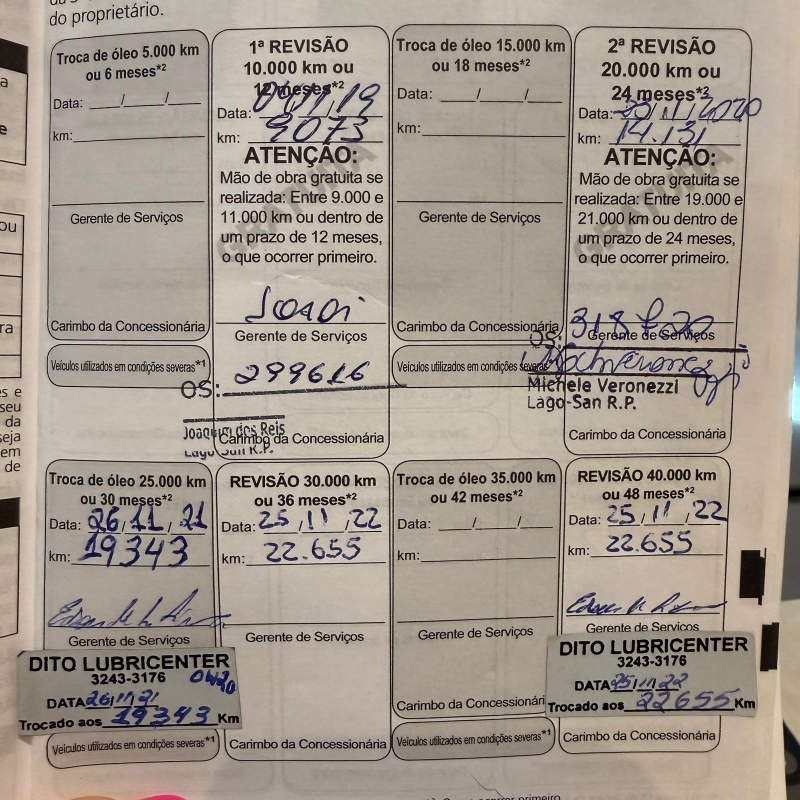 do proprietário.
Troca de óleo 5.000 km
ou 6 meses*2
Data: ___/___/___
km:
Gerente de Serviços
Carimbo da Concessionária
Veículos utilizados em condições severas*1
1ª REVISÃO
10.000 km ou
12 meses*2
Data: 11/19
km: 9073
ATENÇÃO:
Mão de obra gratuita se
realizada: Entre 9.000 e
11.000 km ou dentro de
um prazo de 12 meses,
o que ocorrer primeiro.
Gerente de Serviços
OS: 299616
Joaquim dos Reis
Lago-San R.P.
Carimbo da Concessionária
Troca de óleo 15.000 km
ou 18 meses*2
Data: ___/___/___
km:
Gerente de Serviços
Carimbo da Concessionária
Veículos utilizados em condições severas
2ª REVISÃO
20.000 km ou
24 meses*2
Data: /11/2020
km: 14.131
ATENÇÃO:
Mão de obra gratuita se
realizada: Entre 19.000 e
21.000 km ou dentro de
um prazo de 24 meses,
o que ocorrer primeiro.
OS:
Gerente de Serviços
Michele Veronezzi
Lago-San R.P.
Carimbo da Concessionária
Troca de óleo 25.000 km
ou 30 meses*2
Data: 26/11/21
km: 19343
Gerente de Serviços
DITO LUBRICENTER
3243-3176
DATA 26/11/21
Trocado aos 19343 Km
Veículos utilizados em condições severas*1
REVISÃO 30.000 km
ou 36 meses*2
Data: 25/11/22
km: 22.655
Gerente de Serviços
Carimbo da Concessionária
Troca de óleo 35.000 km
ou 42 meses*2
Data: ___/___/___
km:
Gerente de Serviços
Carimbo da Concessionári
Veículos utilizados em condições severas*1
REVISÃO 40.000 km
ou 48 meses*2
Data: 25/11/22
km: 22.655
Gerente de Serviços
DITO LUBRICENTER
3243-3176
DATA 25/11/22
Trocado aos 22655 Km
Carimbo da Concessionária